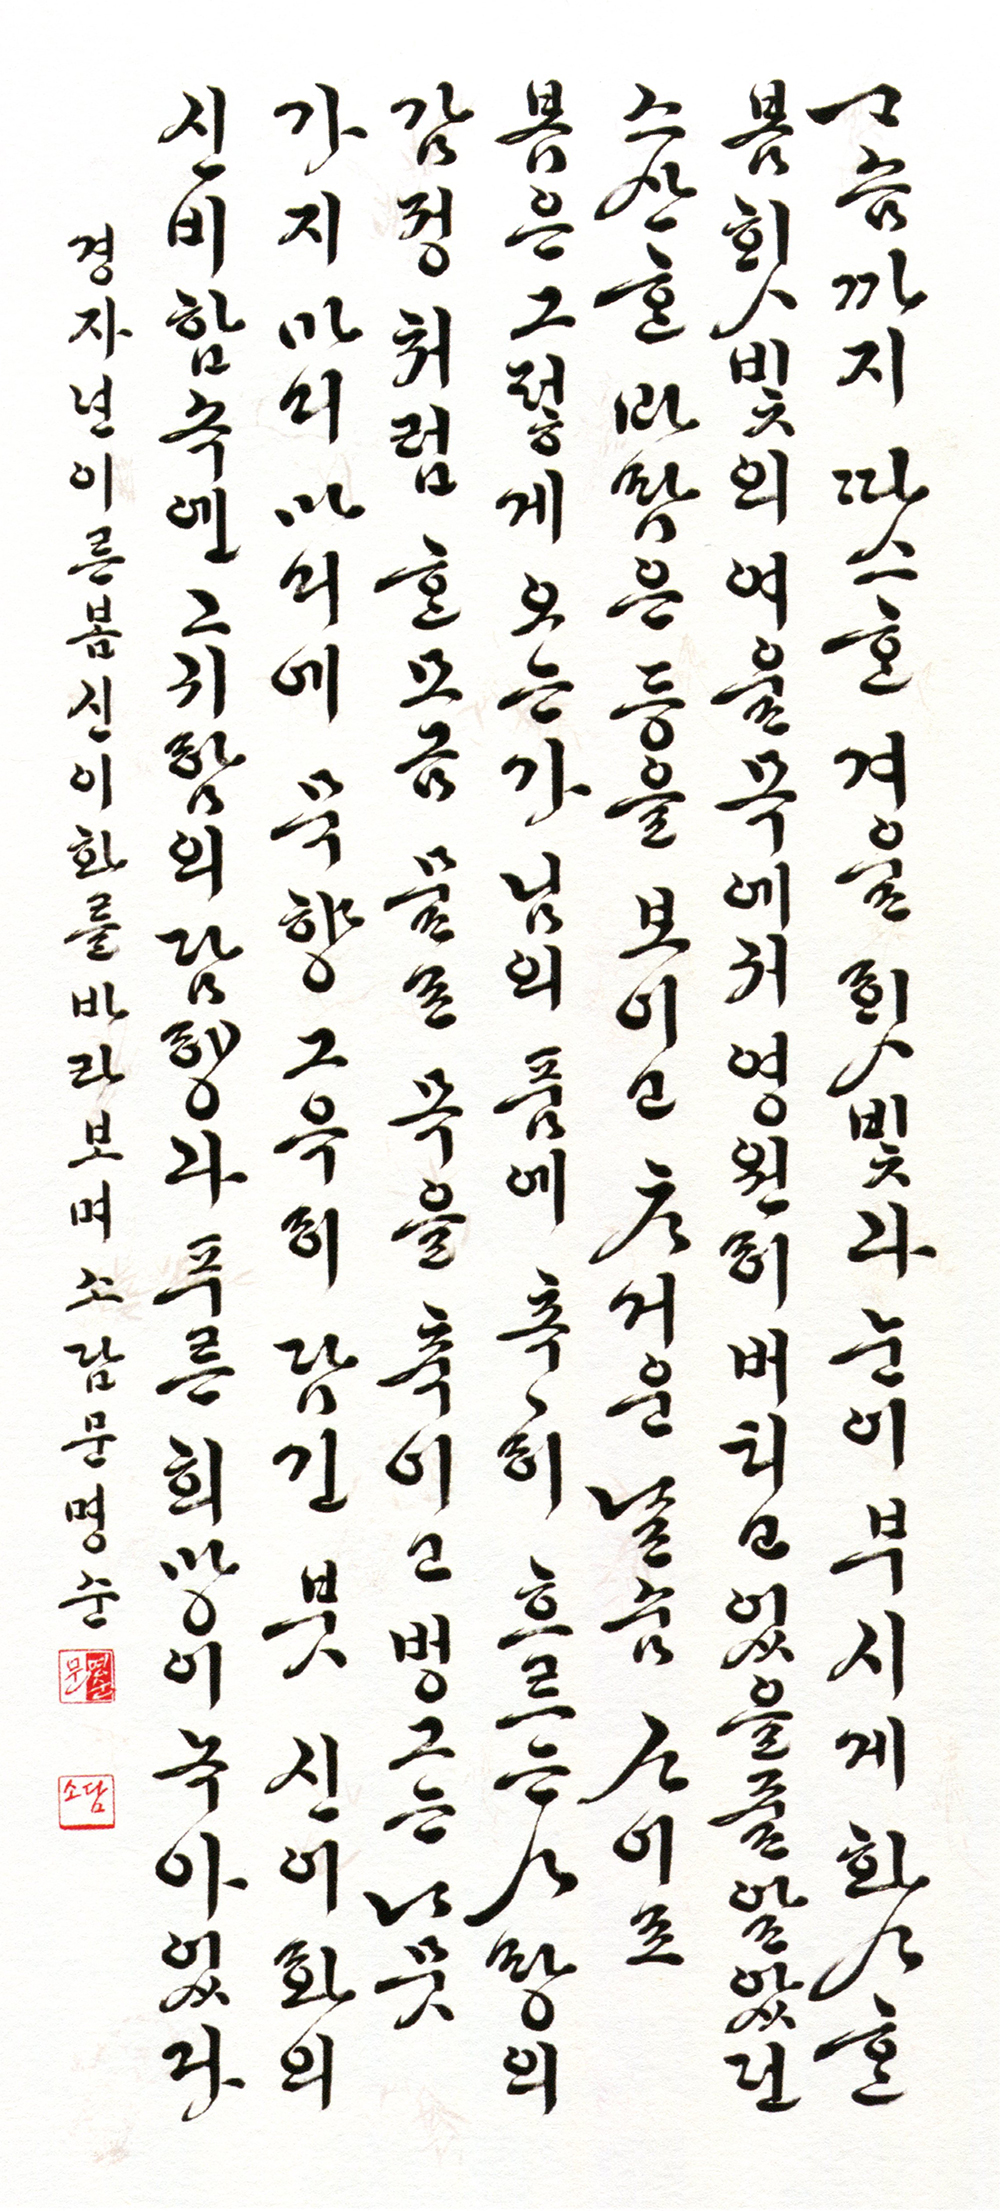 가슴까지 따스한 겨울 햇빛과 눈이 부시게 화사한
봄 햇빛의 여울목에서 영원히 버티고 있을 줄 알았던
스산한 바람은 등을 보이고 차거운 날숨 사이로
봄은 그렇게 오는가 님의 품에 촉촉히 흐르는 사랑의
감정처럼 한모금 물로 목을 축이고 벙그는 나뭇
가지 마디마디에 묵향 그윽히 담긴 붓 신이화의
신비함 속엔 그 귀함의 담향과 푸른 희망이 녹아있다
경자년 이른봄 신이화를 바라보며 소담 문명순
문명순
소담